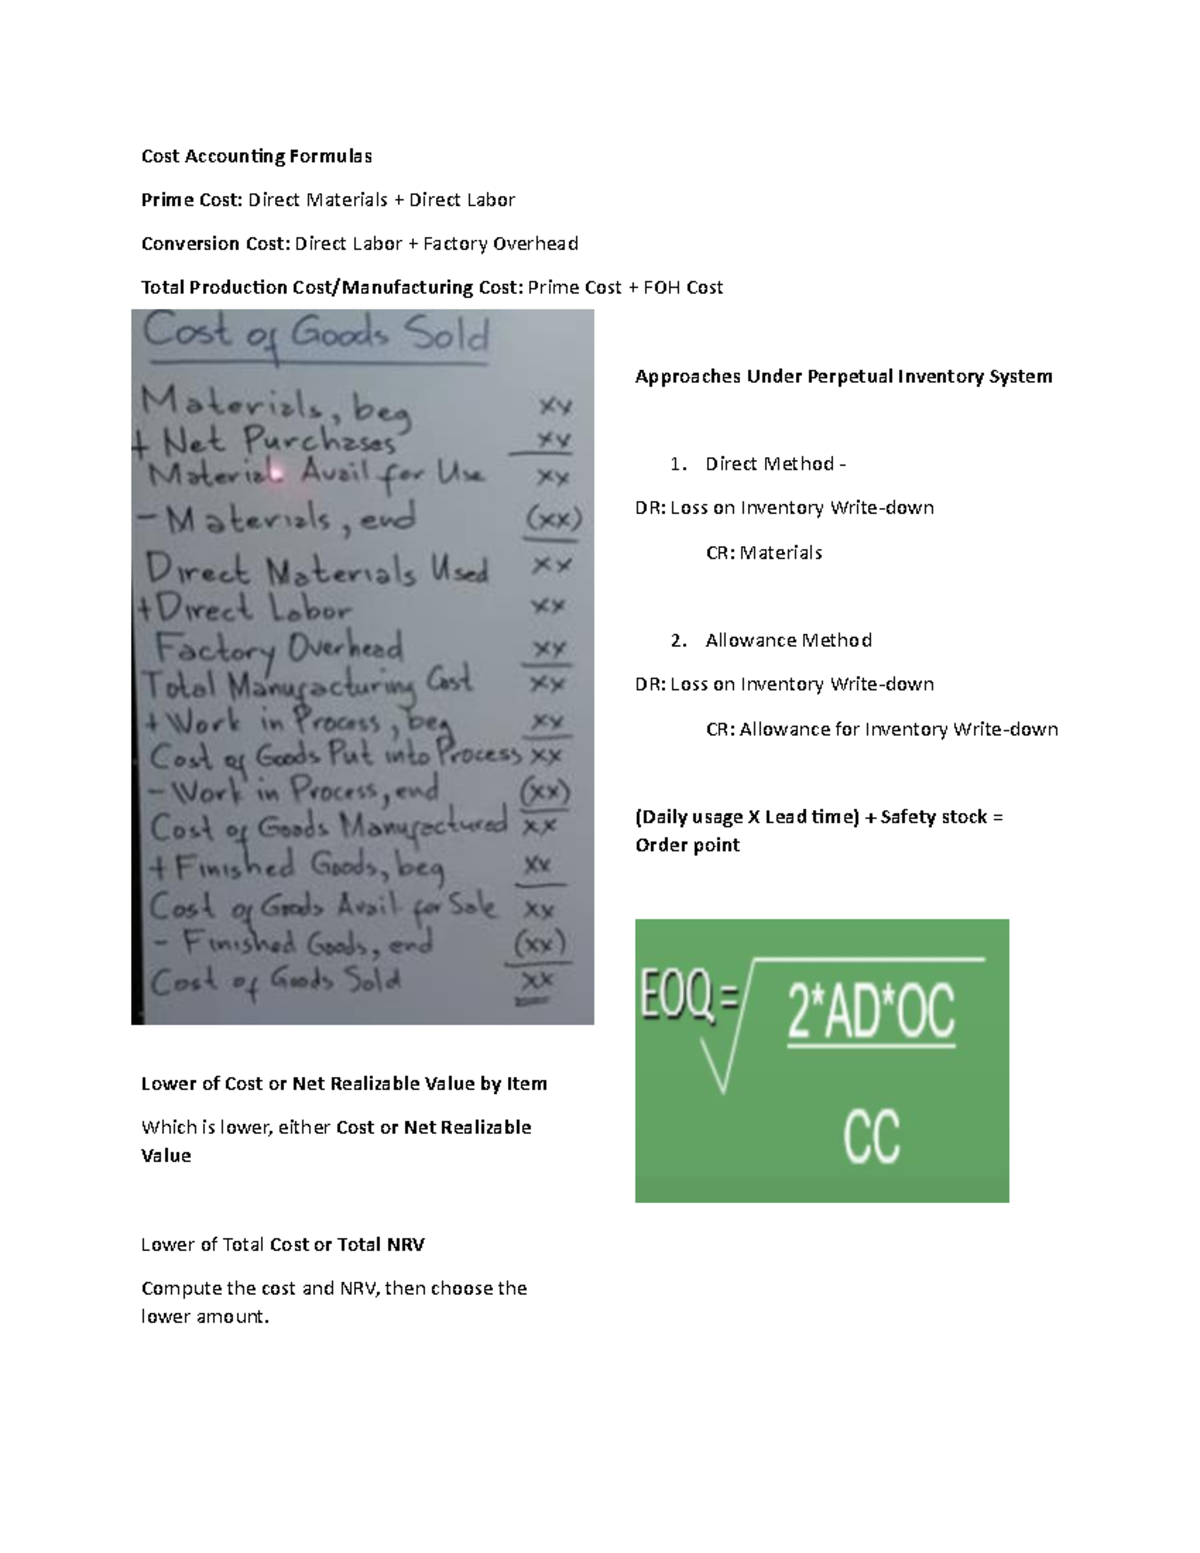 Cost Accounting Formulas
Prime Cost: Direct Materials + Direct Labor
Conversion Cost: Direct Labor + Factory Overhead
Total Production Cost/Manufacturing Cost: Prime Cost + FOH Cost
Cost of Goods Sold
Materials, beg xx
+ Net Purchases xx
Material Avail for Use xx
- Materials, end (xx)
Direct Materials Used xx
+ Direct Labor xx
Factory Overhead xx
Total Manufacturing Cost xx
+ Work in Process, beg xx
Cost of Goods Put into Process xx
- Work in Process, end (xx)
Cost of Goods Manufactured xx
+ Finished Goods, beg xx
Cost of Goods Avail for Sale xx
- Finished Goods, end (xx)
Cost of Goods Sold xx
Lower of Cost or Net Realizable Value by Item
Which is lower, either Cost or Net Realizable
Value
Lower of Total Cost or Total NRV
Compute the cost and NRV, then choose the
lower amount.
Approaches Under Perpetual Inventory System
1. Direct Method -
DR: Loss on Inventory Write-down
CR: Materials
2. Allowance Method
DR: Loss on Inventory Write-down
CR: Allowance for Inventory Write-down
(Daily usage X Lead time) + Safety stock =
Order point
EOQ=√ 2*AD*OC
CC